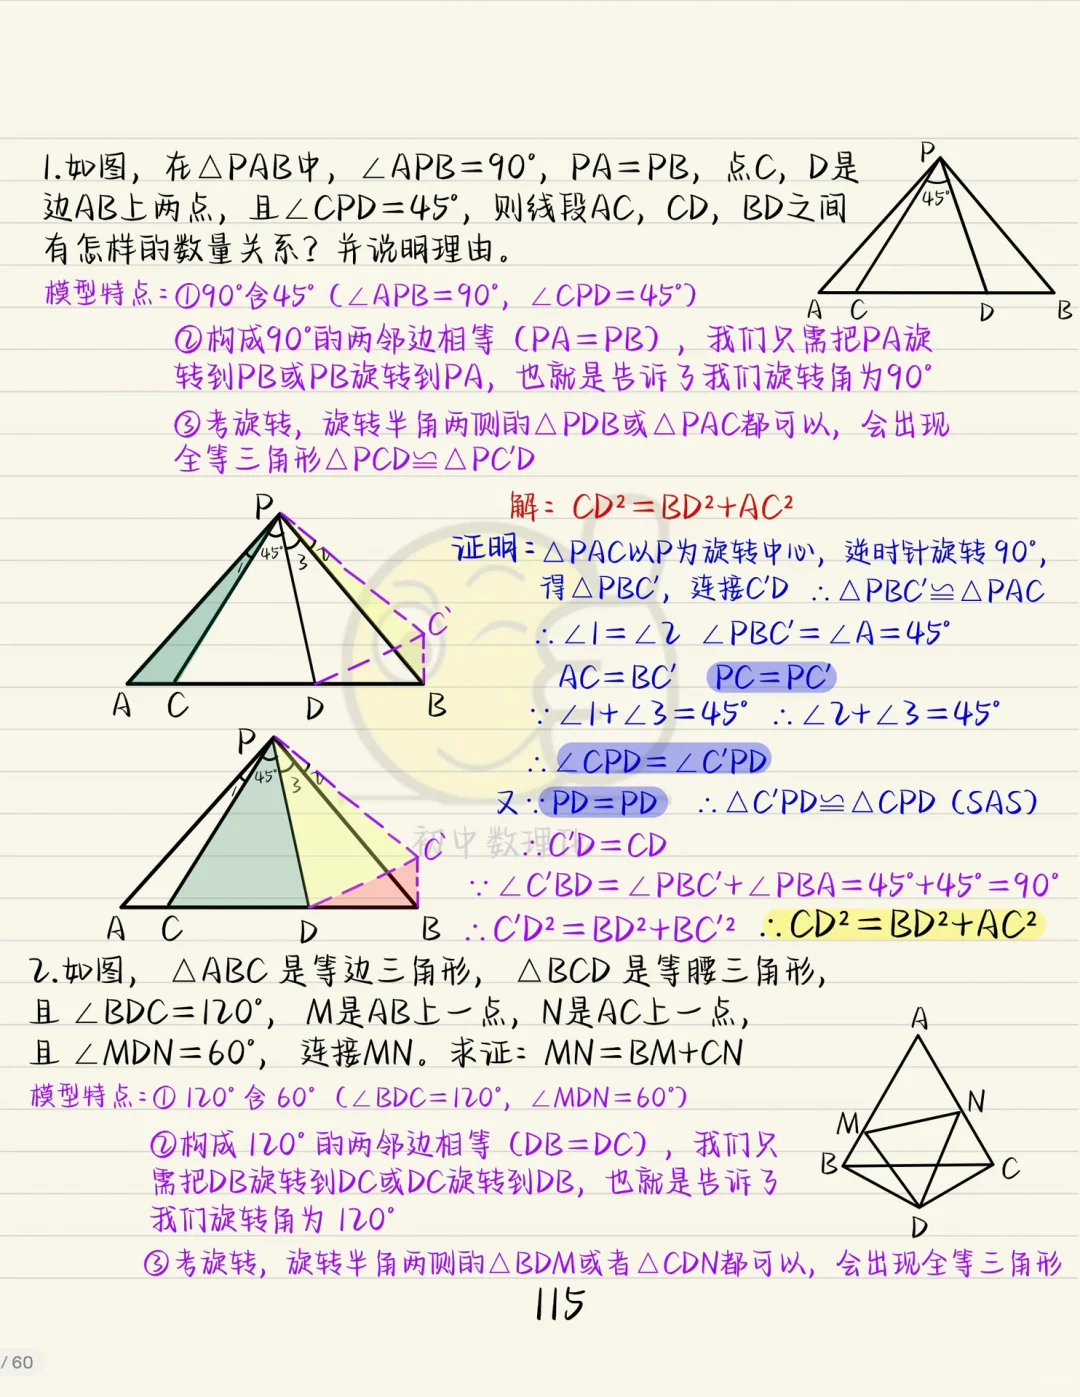 1.如图，在△PAB中，∠APB=90°，PA=PB，点C，D是
边AB上两点，且∠CPD=45°，则线段AC，CD，BD之间
有怎样的数量关系？并说明理由。
P
45°
A C D B
模型特点：①90°含45°（∠APB=90°，∠CPD=45°）
②构成90°的两邻边相等（PA=PB），我们只需把PA旋
转到PB或PB旋转到PA，也就是告诉了我们旋转角为90°
③考旋转，旋转半角两侧的△PDB或△PAC都可以，会出现
全等三角形△PCD≌△PC'D
P
1 45° 3 2
C'
A C D B
解：CD²=BD²+AC²
证明：△PAC以P为旋转中心，逆时针旋转90°，
得△PBC'，连接C'D ∴△PBC'≌△PAC
∴∠1=∠2 ∠PBC'=∠A=45°
AC=BC' PC=PC'
∵∠1+∠3=45° ∴∠2+∠3=45°
∴∠CPD=∠C'PD
又∵PD=PD ∴△C'PD≌△CPD（SAS）
∴C'D=CD
∵∠C'BD=∠PBC'+∠PBA=45°+45°=90°
∴C'D²=BD²+BC'² ∴CD²=BD²+AC²
P
1 45° 3 2
C'
A C D B
初中数理化
2.如图，△ABC是等边三角形，△BCD是等腰三角形，
且∠BDC=120°，M是AB上一点，N是AC上一点，
且∠MDN=60°，连接MN。求证：MN=BM+CN
A
N
M
B C
D
模型特点：①120°含60°（∠BDC=120°，∠MDN=60°）
②构成120°的两邻边相等（DB=DC），我们只
需把DB旋转到DC或DC旋转到DB，也就是告诉了
我们旋转角为120°
③考旋转，旋转半角两侧的△BDM或者△CDN都可以，会出现全等三角形
115
/ 60